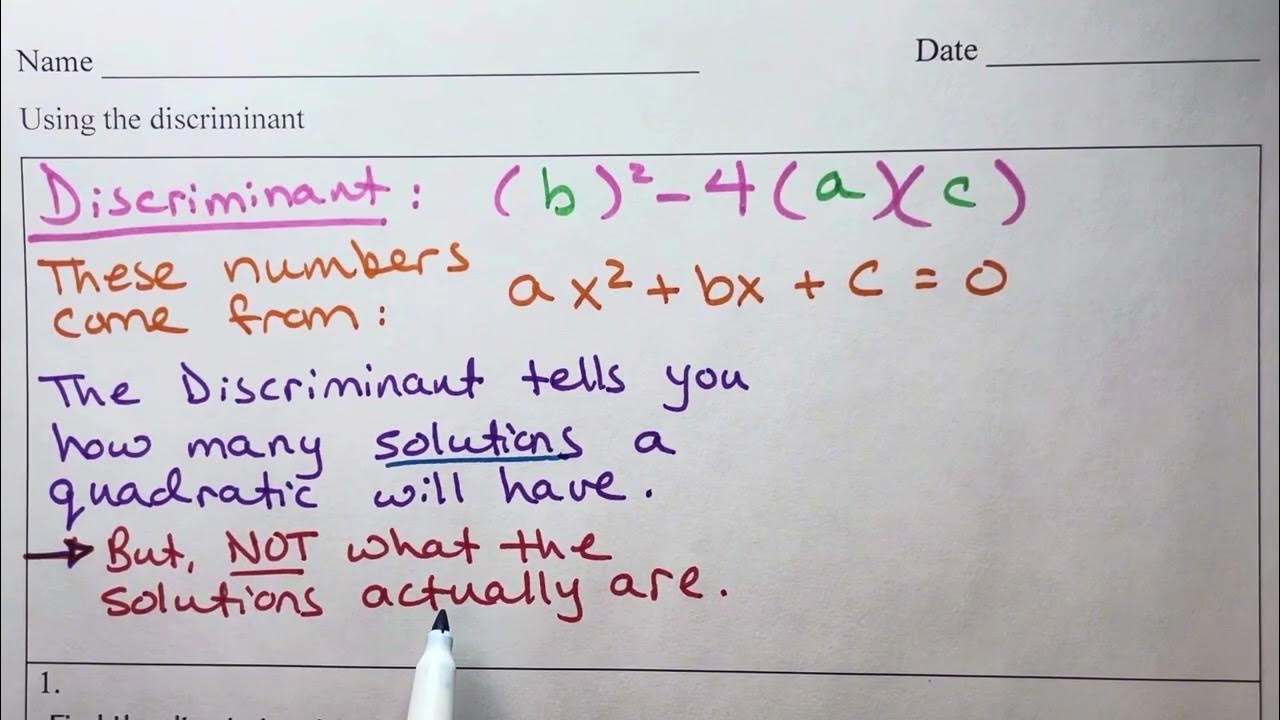 Name
Date
Using the discriminant
Discriminant: (b)² - 4(a)(c)
These numbers
come from: ax² + bx + c = 0
The Discriminant tells you
how many solutions a
quadratic will have.
→ But, NOT what the
solutions actually are.
1.